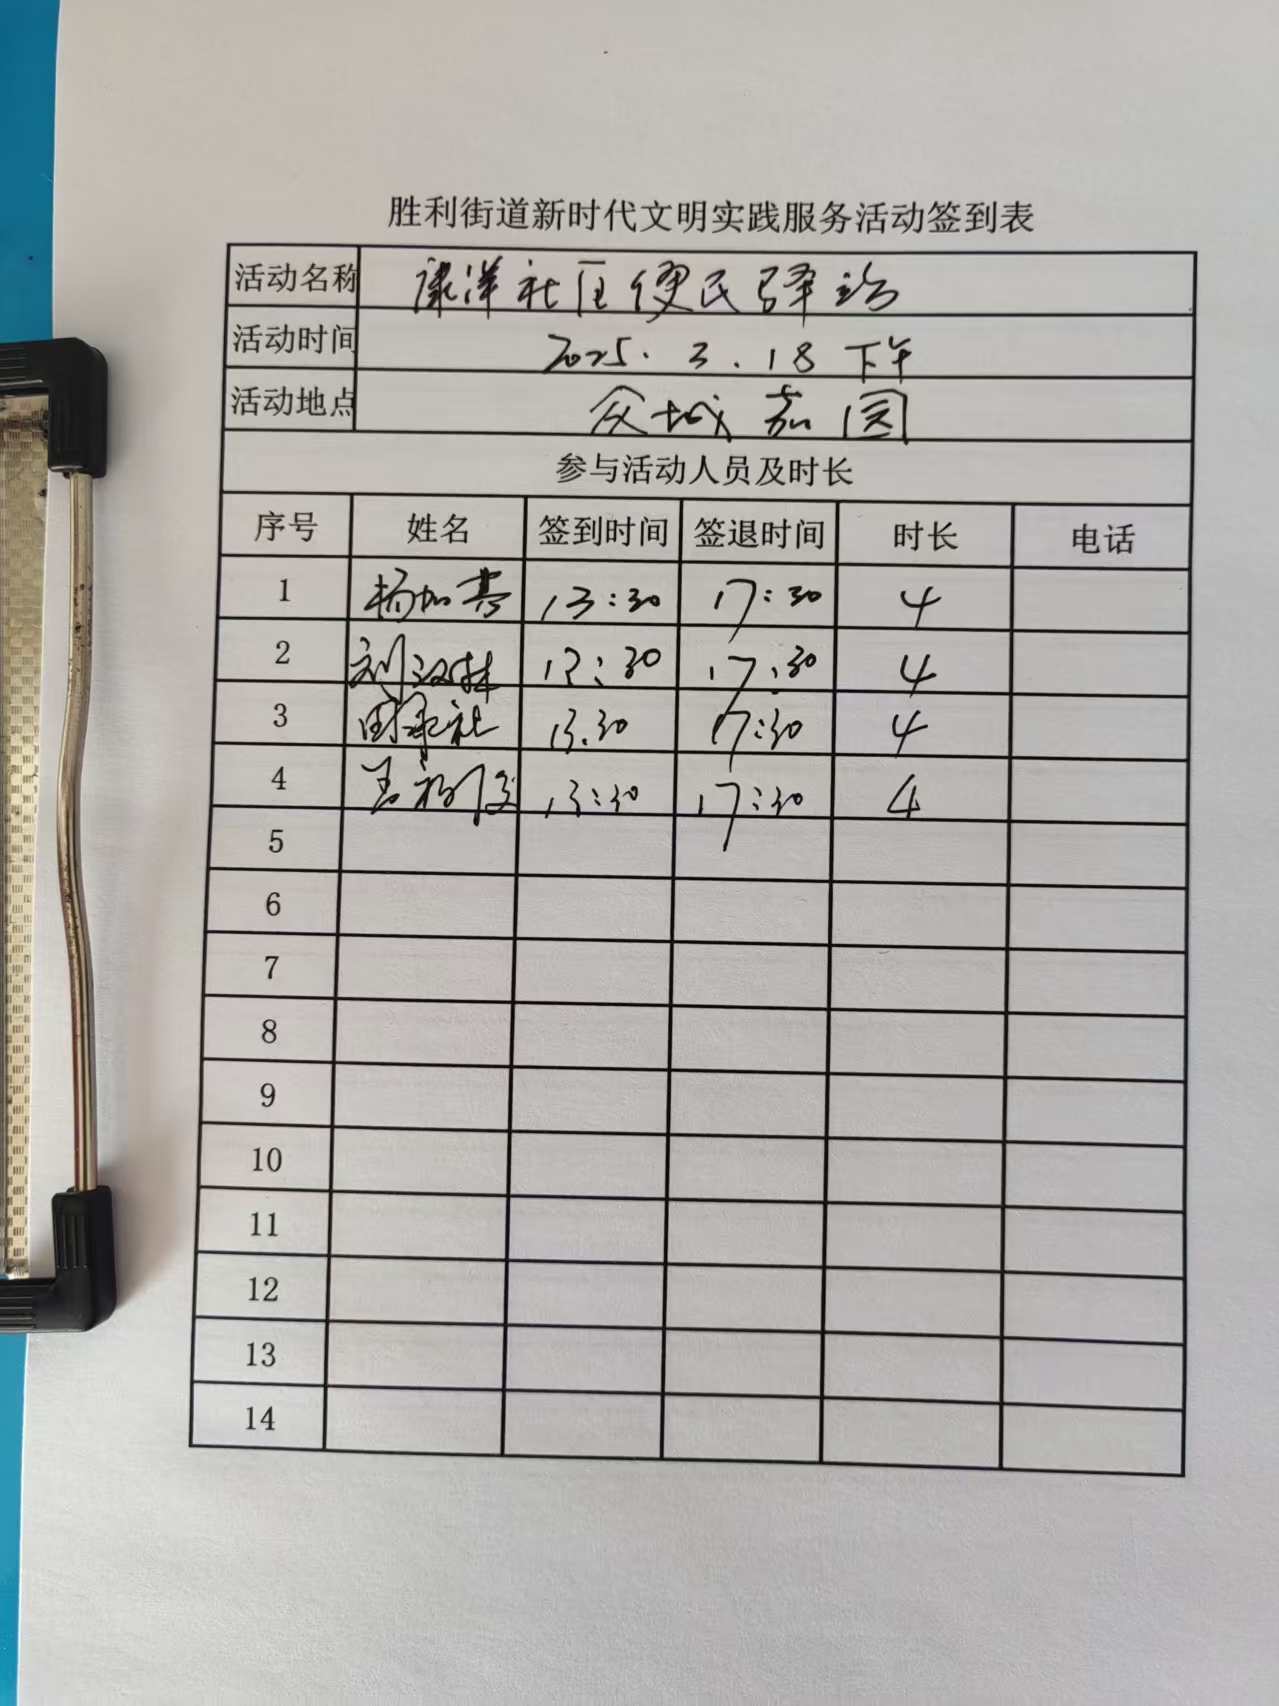 胜利街道新时代文明实践服务活动签到表
活动名称 康洋社区便民驿站
活动时间 2025.3.18下午
活动地点 众城嘉园
参与活动人员及时长
序号 姓名 签到时间 签退时间 时长 电话
1 杨加 13:30 17:30 4
2 刘汉林 13:30 17:30 4
3 社 13.30 17:30 4
4 13:30 17:30 4
5
6
7
8
9
10
11
12
13
14